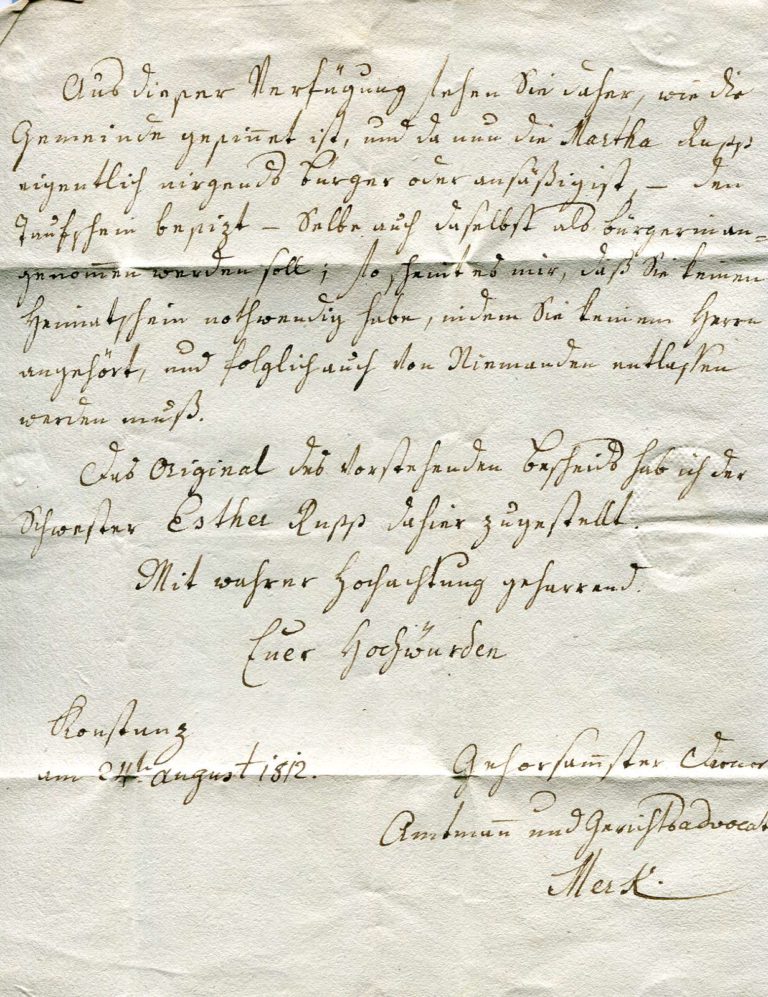 Aus dieser Verfügung sehen Sie daher, wie die
Gemeinde gesinnet ist, und da nun die Martha Russ
eigentlich nirgends bürger oder ansäßig ist, – den
Taufschein besizt – Selbe auch daselbst als bürgerin an=
genommen werden soll; so scheint es mir, daß Sie keinen
Heimatschein nothwendig habe, indem Sie keinem Herrn
angehört, und folglich auch von Niemanden entlassen
werden muß.
Das Original des vorstehenden bescheids hab ich der
Schwester Esther Russ dahier zugestellt.
Mit wahrer Hochachtung geharrend.
Euer Hochwürden
Konstanz
am 24t august 1812.
Gehorsamster Diener
Amtmann und Gerichtsadvocat
Merk.